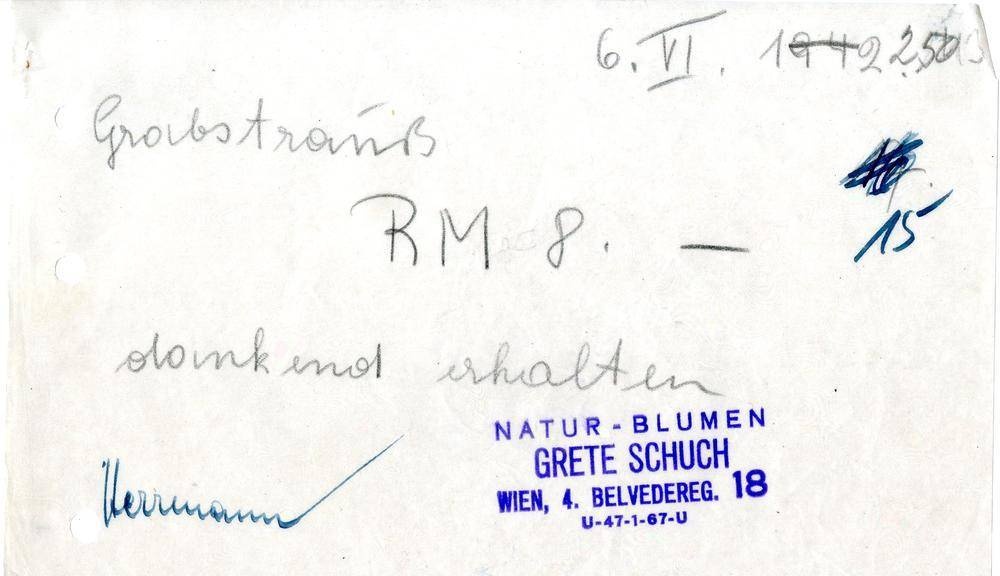 6. VI. 1942
Grabstrauß
15
RM 8. —
dankend erhalten
NATUR-BLUMEN
GRETE SCHUCH
WIEN, 4. BELVEDEREG. 18
U-47-1-67-U
Herrmann